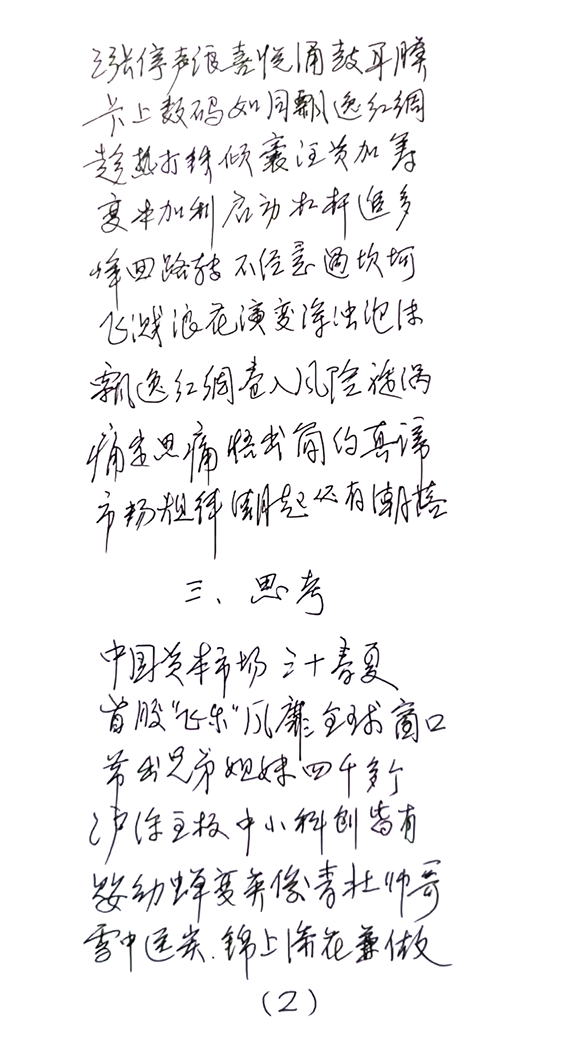 涨停声浪喜悦涌鼓耳膜
卡上数码如同飘逸红绸
趁热打铁倾囊注资加筹
变本加利启动杠杆追多
峰回路转不经意遇坎坷
飞溅浪花演变浑浊泡沫
飘逸红绸卷入风险漩涡
痛定思痛悟出简约真谛
市场规律潮起必有潮落
三、思考
中国资本市场三十春夏
首股“飞乐”风靡全球窗口
带出兄弟姐妹四千多个
沪深主板中小科创皆有
婴幼蝉变英俊青壮帅哥
雪中送炭.锦上添花兼做
(2)